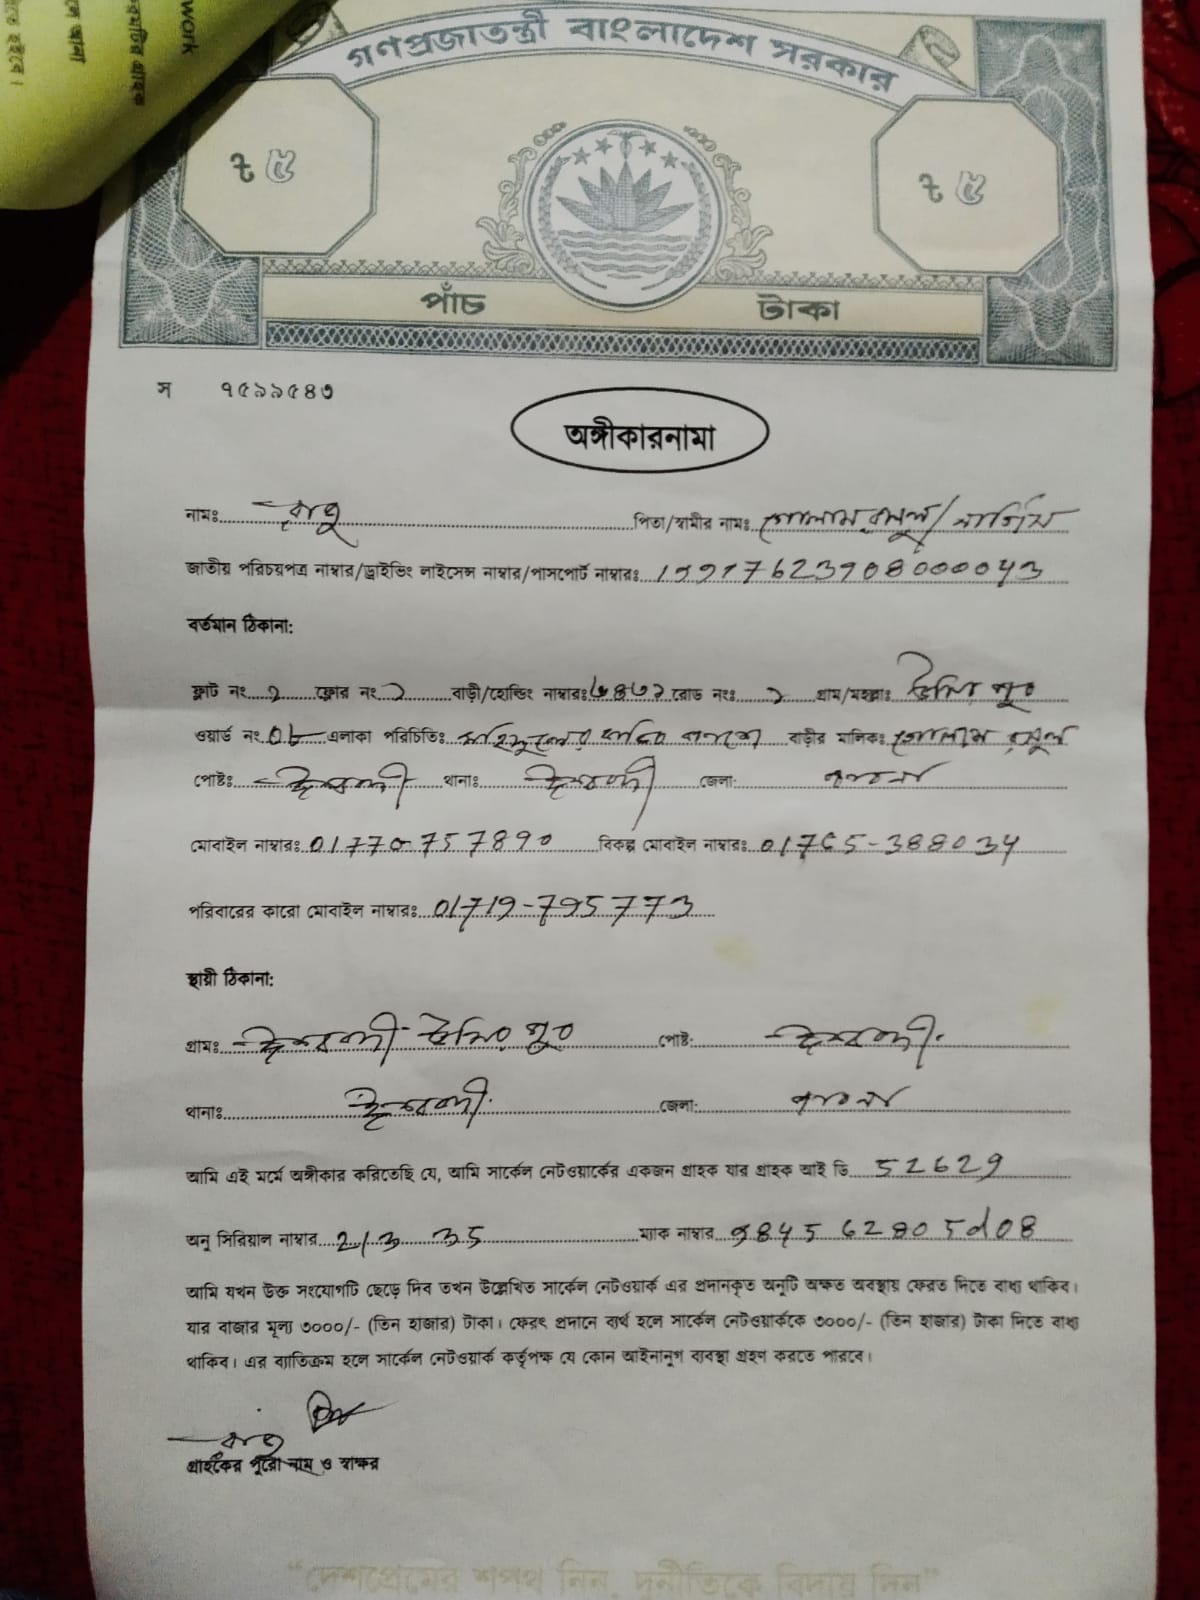 work
গণপ্রজাতন্ত্রী বাংলাদেশ সরকার
৳ ৫ ৳ ৫
পাঁচ টাকা
স ৭৫৯৯৫৪৩
অঙ্গীকারনামা
নামঃ পিতা/স্বামীর নামঃ গোলাম রসুল/
জাতীয় পরিচয়পত্র নাম্বার/ড্রাইভিং লাইসেন্স নাম্বার/পাসপোর্ট নাম্বারঃ 19917623908000043
বর্তমান ঠিকানা:
ফ্লাট নং ফ্লোর নং বাড়ী/হোল্ডিং নাম্বারঃ রোড নংঃ গ্রাম/মহল্লাঃ
ওয়ার্ড নং 08 এলাকা পরিচিতিঃ বাড়ীর মালিকঃ গোলাম রসুল
পোষ্টঃ ঈশ্বরদী থানাঃ ঈশ্বরদী জেলা: পাবনা
মোবাইল নাম্বারঃ 01770-757890 বিকল্প মোবাইল নাম্বারঃ 01765-388034
পরিবারের কারো মোবাইল নাম্বারঃ 01719-795773
স্থায়ী ঠিকানা:
গ্রামঃ ঈশ্বরদী পোষ্ট: ঈশ্বরদী
থানাঃ ঈশ্বরদী জেলা: পাবনা
আমি এই মর্মে অঙ্গীকার করিতেছি যে, আমি সার্কেল নেটওয়ার্কের একজন গ্রাহক যার গ্রাহক আই ডি 52629
অনু সিরিয়াল নাম্বার ম্যাক নাম্বার 984562805d08
আমি যখন উক্ত সংযোগটি ছেড়ে দিব তখন উল্লেখিত সার্কেল নেটওয়ার্ক এর প্রদানকৃত অনুটি অক্ষত অবস্থায় ফেরত দিতে বাধ্য থাকিব।
যার বাজার মূল্য ৩০০০/- (তিন হাজার) টাকা। ফেরৎ প্রদানে ব্যর্থ হলে সার্কেল নেটওয়ার্ককে ৩০০০/- (তিন হাজার) টাকা দিতে বাধ্য
থাকিব। এর ব্যাতিক্রম হলে সার্কেল নেটওয়ার্ক কর্তৃপক্ষ যে কোন আইনানুগ ব্যবস্থা গ্রহণ করতে পারবে।
গ্রাহকের পুরো নাম ও স্বাক্ষর
“দেশপ্রেমের শপথ নিন, দুর্নীতিকে বিদায় দিন”